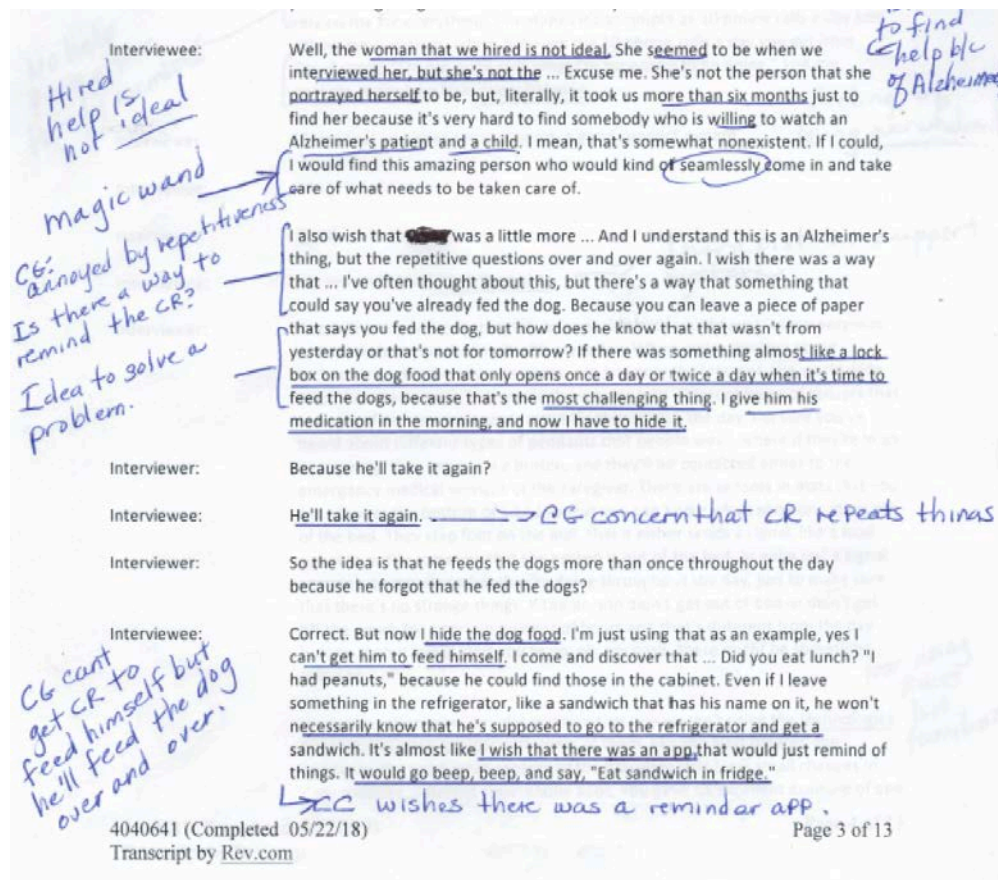 to find
help b/c
of Alzheimer
Interviewee: Well, the woman that we hired is not ideal. She seemed to be when we
interviewed her, but she's not the ... Excuse me. She's not the person that she
portrayed herself to be, but, literally, it took us more than six months just to
find her because it's very hard to find somebody who is willing to watch an
Alzheimer's patient and a child. I mean, that's somewhat nonexistent. If I could,
I would find this amazing person who would kind of seamlessly come in and take
care of what needs to be taken care of.
Hired
help is
not ideal
magic wand
I also wish that was a little more ... And I understand this is an Alzheimer's
thing, but the repetitive questions over and over again. I wish there was a way
that ... I've often thought about this, but there's a way that something that
could say you've already fed the dog. Because you can leave a piece of paper
that says you fed the dog, but how does he know that that wasn't from
yesterday or that's not for tomorrow? If there was something almost like a lock
box on the dog food that only opens once a day or twice a day when it's time to
feed the dogs, because that's the most challenging thing. I give him his
medication in the morning, and now I have to hide it.
CG:
annoyed by repetitiveness
Is there a way to
remind the CR?
Idea to solve a
problem.
Interviewer: Because he'll take it again?
Interviewee: He'll take it again.
CG concern that CR repeats things
Interviewer: So the idea is that he feeds the dogs more than once throughout the day
because he forgot that he fed the dogs?
Interviewee: Correct. But now I hide the dog food. I'm just using that as an example, yes I
can't get him to feed himself. I come and discover that ... Did you eat lunch? "I
had peanuts," because he could find those in the cabinet. Even if I leave
something in the refrigerator, like a sandwich that has his name on it, he won't
necessarily know that he's supposed to go to the refrigerator and get a
sandwich. It's almost like I wish that there was an app that would just remind of
things. It would go beep, beep, and say, "Eat sandwich in fridge."
CG cant
get CR to
feed himself but
he'll feed the dog
over and over.
CC wishes there was a remindar app.
4040641 (Completed 05/22/18)
Transcript by Rev.com
Page 3 of 13